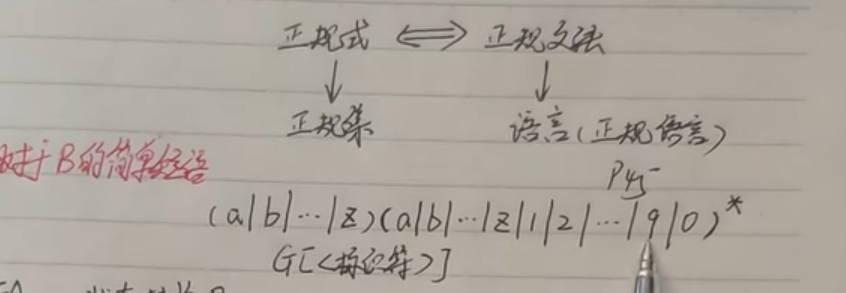 正规式 ⟺ 正规文法
↓ ↓
正规集 语言(正规语言)
对于B的简单短语
P45
(a|b|…|z)(a|b|…|z|1|2|…|9|0)*
G[<标识符>]